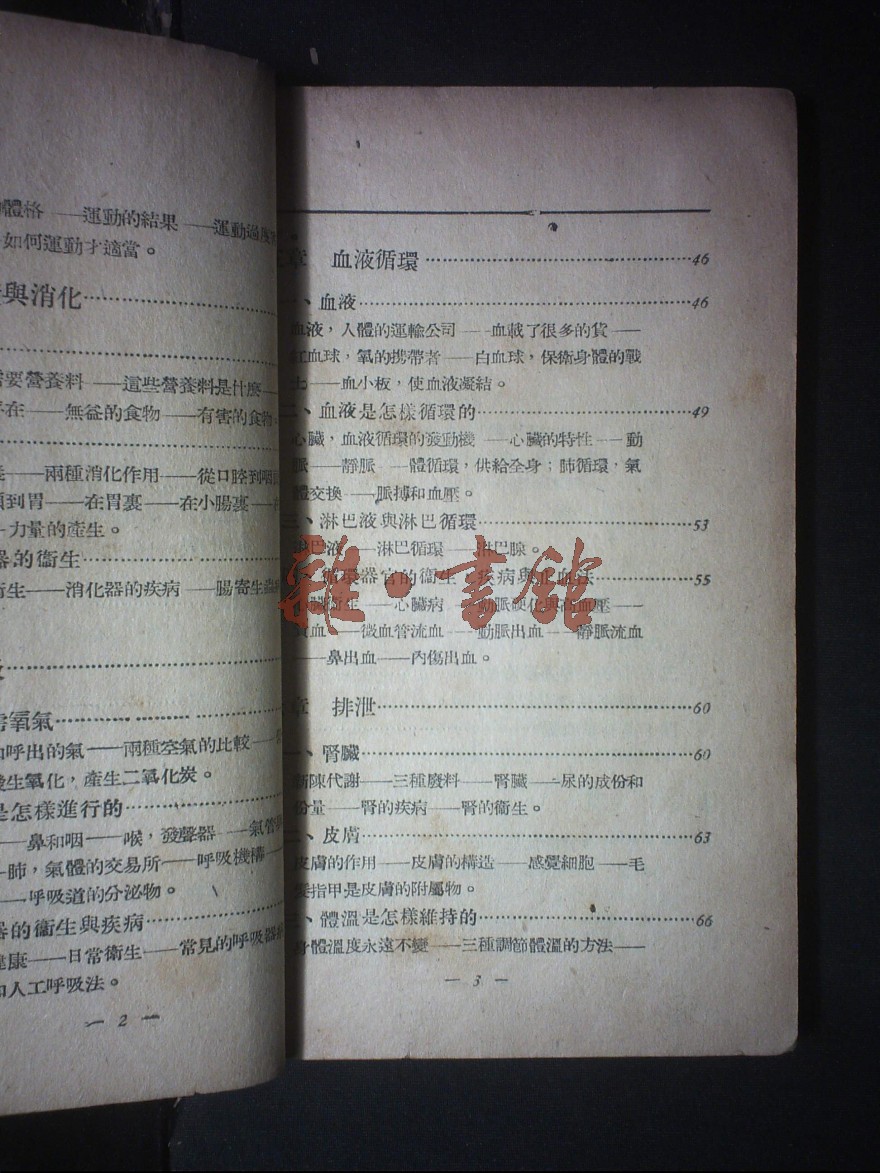 體格——運動的結果——運動過度
如何運動才適當。
與消化
要營養料——這些營養料是什麼——
存在——無益的食物——有害的食物。
——兩種消化作用——從口腔到咽
到胃——在胃裏——在小腸裏——
力量的產生。
器的衞生
衞生——消化器的疾病——腸寄生蟲
需氧氣
呼出的氣——兩種空氣的比較——
發生氧化,產生二氧化炭。
是怎樣進行的
——鼻和咽——喉,發聲器——氣管
——肺,氣體的交易所——呼吸機構——
——呼吸道的分泌物。
器的衞生與疾病
健康——日常衞生——常見的呼吸器病
和人工呼吸法。
— 2 —
章 血液循環 46
一、血液 46
血液,人體的運輸公司——血載了很多的貨——
紅血球,氧的携帶者——白血球,保衞身體的戰
士——血小板,使血液凝結。
二、血液是怎樣循環的 49
心臟,血液循環的發動機——心臟的特性——動
脈——靜脈——體循環,供給全身;肺循環,氣
體交換——脈搏和血壓。
三、淋巴液與淋巴循環 53
淋巴液——淋巴循環——淋巴腺。
循環器官的衞生、疾病與止血法 55
心臟衞生——心臟病——動脈硬化與高血壓——
貧血——微血管流血——動脈出血——靜脈流血
——鼻出血——內傷出血。
章 排泄 60
一、腎臟 60
新陳代謝——三種廢料——腎臟——尿的成份和
份量——腎的疾病——腎的衞生。
二、皮膚 63
皮膚的作用——皮膚的構造——感覺細胞——毛
髮指甲是皮膚的附屬物。
三、體溫是怎樣維持的 66
身體溫度永遠不變——三種調節體溫的方法——
— 3 —
雜·書館